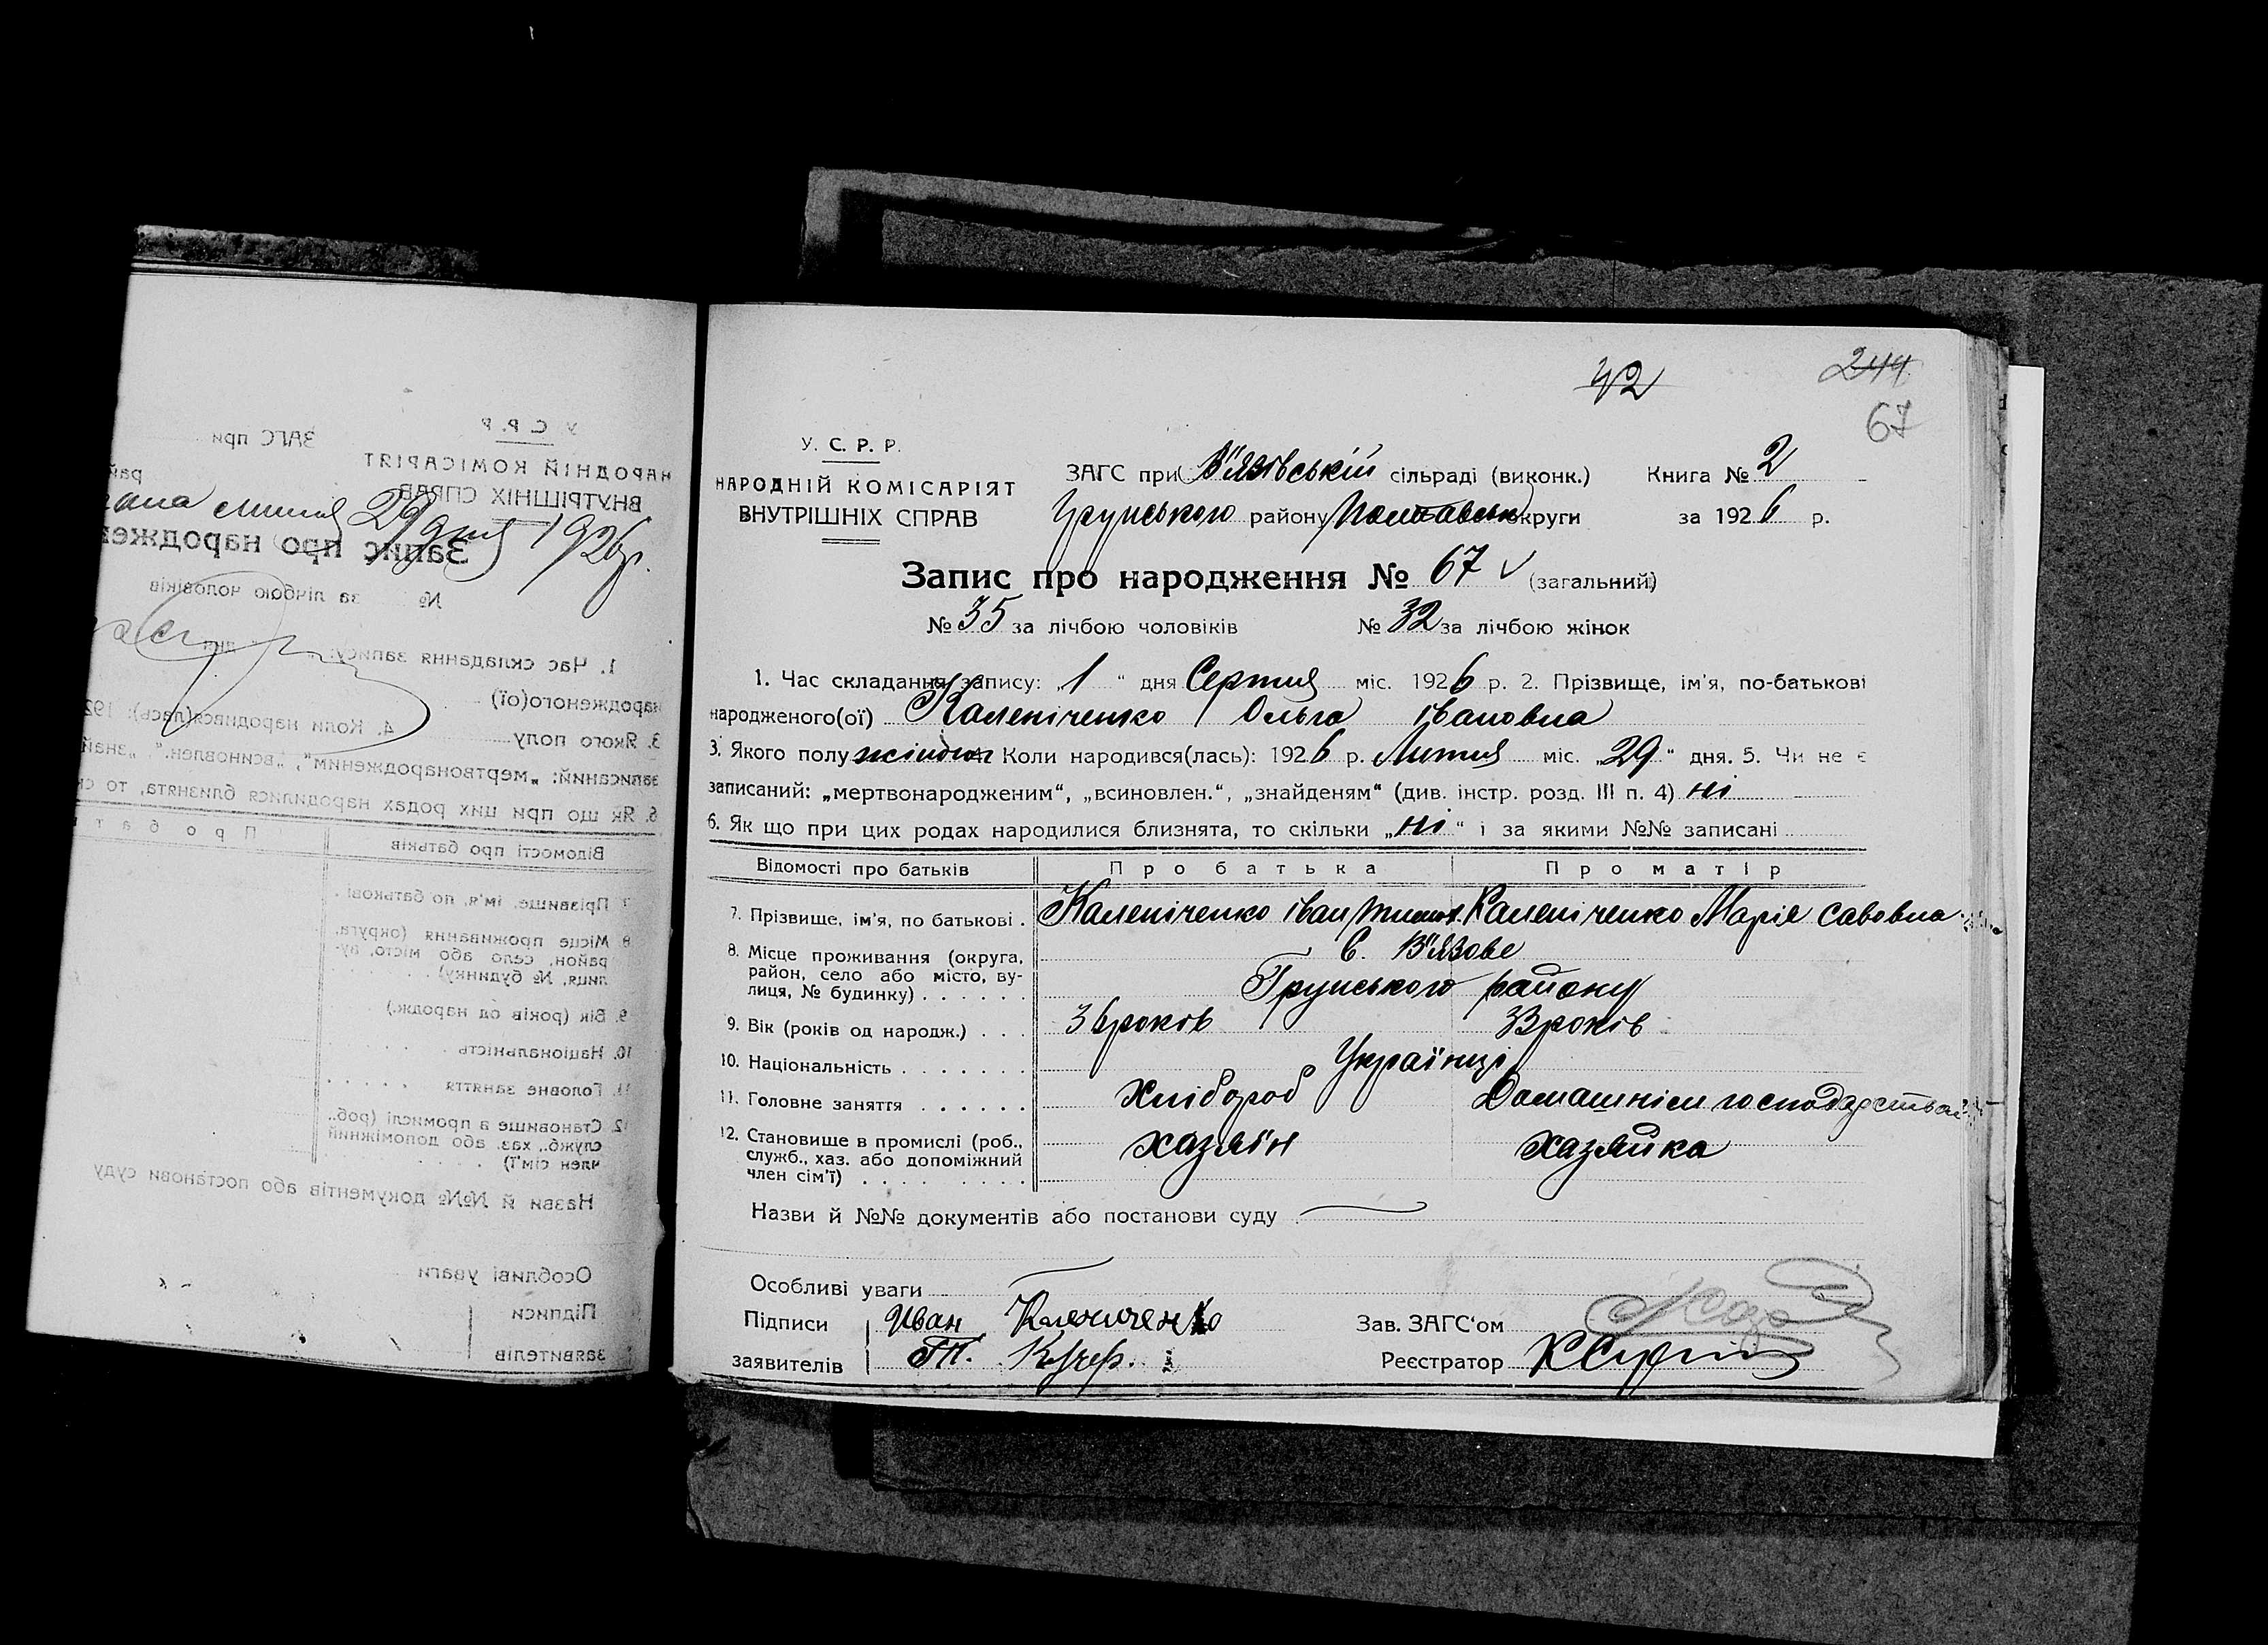 42
244
67
У. С. Р. Р.
НАРОДНІЙ КОМІСАРІЯТ
ВНУТРІШНІХ СПРАВ
ЗАГС при В'язівській сільраді (виконк.) Книга № 2
Грунського району Полтавськ округи за 1926 р.
Запис про народження № 67 (загальний)
№ 35 за лічбою чоловіків № 32 за лічбою жінок
1. Час складання запису: „1“ дня Серпня міс. 1926 р. 2. Прізвище, ім'я, по-батькові
народженого(ої) Калепіченко Ольга Івановна
3. Якого полу жіночої Коли народився(лась): 1926 р. Липня міс. „29“ дня. 5. Чи не є
записаний: „мертвонародженим“, „всиновлен.“, „знайденям“ (див. інстр. розд. III п. 4) ні
6. Як що при цих родах народилися близнята, то скільки „ні“ і за якими №№ записані
Відомості про батьків Про батька Про матір
7. Прізвище, ім'я, по батькові . Калепіченко Іван Тимох. Калепіченко Марія Савовна
8. Місце проживання (округа, С. В'язове
район, село або місто, ву-
лиця, № будинку) . . . . . . Грунського району
9. Вік (років од народж.) . . . 36 років 33 років
10. Національність . . . . . . . Українці
11. Головне заняття . . . . . . Хлібороб Домашнім господарством
12. Становище в промислі (роб., хазяїн хазяйка
служб., хаз. або допоміжний
член сім'ї) . . . . . . . . .
Назви й №№ документів або постанови суду
Особливі уваги
Підписи Иван Калениченко Зав. ЗАГС'ом
заявителів Т. Кучер. Реєстратор
У. С. Р. Р.
НАРОДНІЙ КОМІСАРІЯТ
ВНУТРІШНІХ СПРАВ
ЗАГС при
рай
липня 29 дня 1926 р.
Запис про народжен
№ за лічбою чоловіків
1. Час складання запису: дня
народженого(ої)
3. Якого полу 4. Коли народився(лась): 192
записаний: „мертвонародженим“, „всиновлен.“, „знай
6. Як що при цих родах народилися близнята, то ск
Відомості про батьків Про бат
7. Прізвище, ім'я, по батькові .
8. Місце проживання (округа,
район, село або місто, ву-
лиця, № будинку) . . .
9. Вік (років од народж.)
10. Національність
11. Головне заняття . . . . .
12. Становище в промислі (роб.,
служб., хаз. або допоміжний
член сім'ї)
Назви й №№ документів або постанови суду
Особливі уваги
Підписи
заявителів